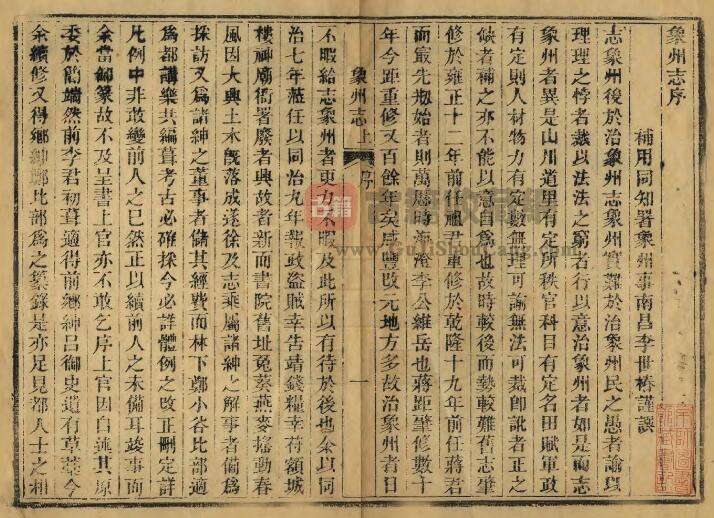 象州志序
補用同知署象州事南昌李世椿謹譔
志象州後於治象州志象州實難於治象州民之愚者諭以
理理之悖者裁以法法之窮者行以意治象州者如是而志
象州者異是山川道里有定所秩官科目有定名田賦軍政
有定則人材物力有定數無理可諭無法可裁即訛者正之
缺者補之亦不能以意自爲也故時較後而勢較難舊志肇
修於雍正十二年前任
君重修於乾隆十九年前任蔣君
而最先剏始者則萬厯時海澄李公維岳也蔣距肇修數十
年今距重修又百餘年矣咸豐改元地方多故治象州者日
象州志上 序 一
不暇給志象州者更力不暇及此所以有待於後也余以同
治七年蒞任以同治九年報政盜賊幸告靖錢糧幸符額城
樓神廟衙署廢者興故者新而書院舊址兔葵燕麥搖動春
風因大興土木旣落成遂徐及志乘屬諸紳之解事者備爲
採訪又爲諸紳之董事者儲其經費而林下鄭小谷比部適
爲都講樂共編葺考古必確採今必詳體例之改正刪定詳
凡例中非敢變前人之已然正以續前人之未備耳竣事而
余當卸篆故不及呈書上官亦不敢乞序上官因自述其原
委於簡端然前李君初葺適得前鄉紳呂御史遺有草藁今
余續修又得鄉紳鄭比部爲之纂錄是亦足見都人士之相
古籍收藏
www.GuJiShouCang.com